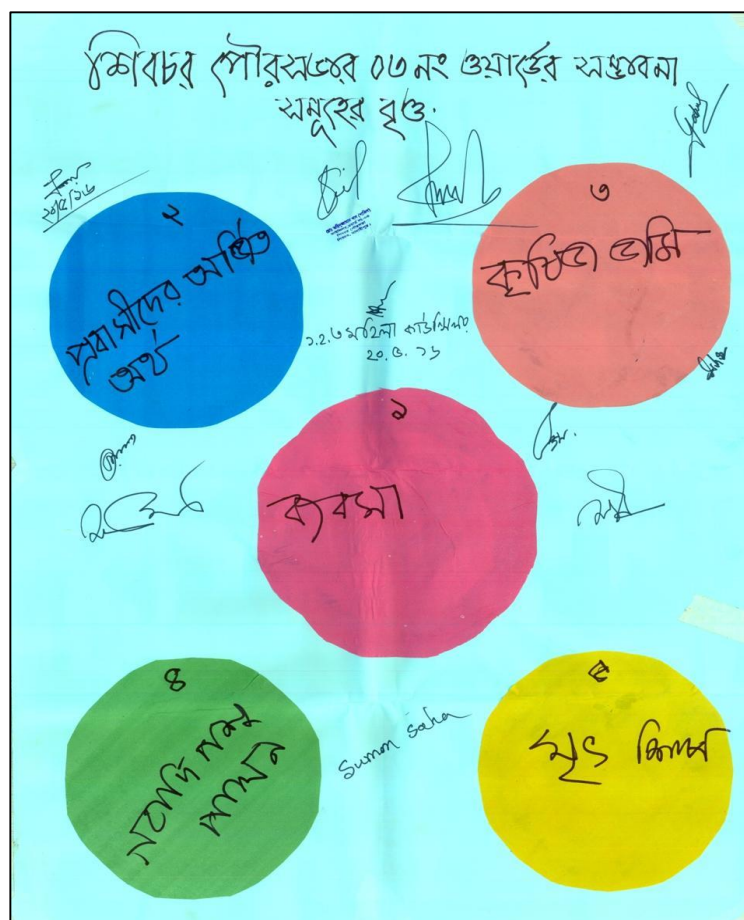 শিবচর পৌরসভার ০৩ নং ওয়ার্ডের সম্ভাবনা
সমূহের বৃত্ত.
২
প্রবাসীদের অর্জিত
অর্থ
৩
কৃষিজ জমি
১.২.৩ মহিলা কাউন্সিলর
২০.৫.১৬
১
ব্যবসা
৪
গবাদি পশু
পালন
৫
মৃৎ শিল্প
Sumon Saha